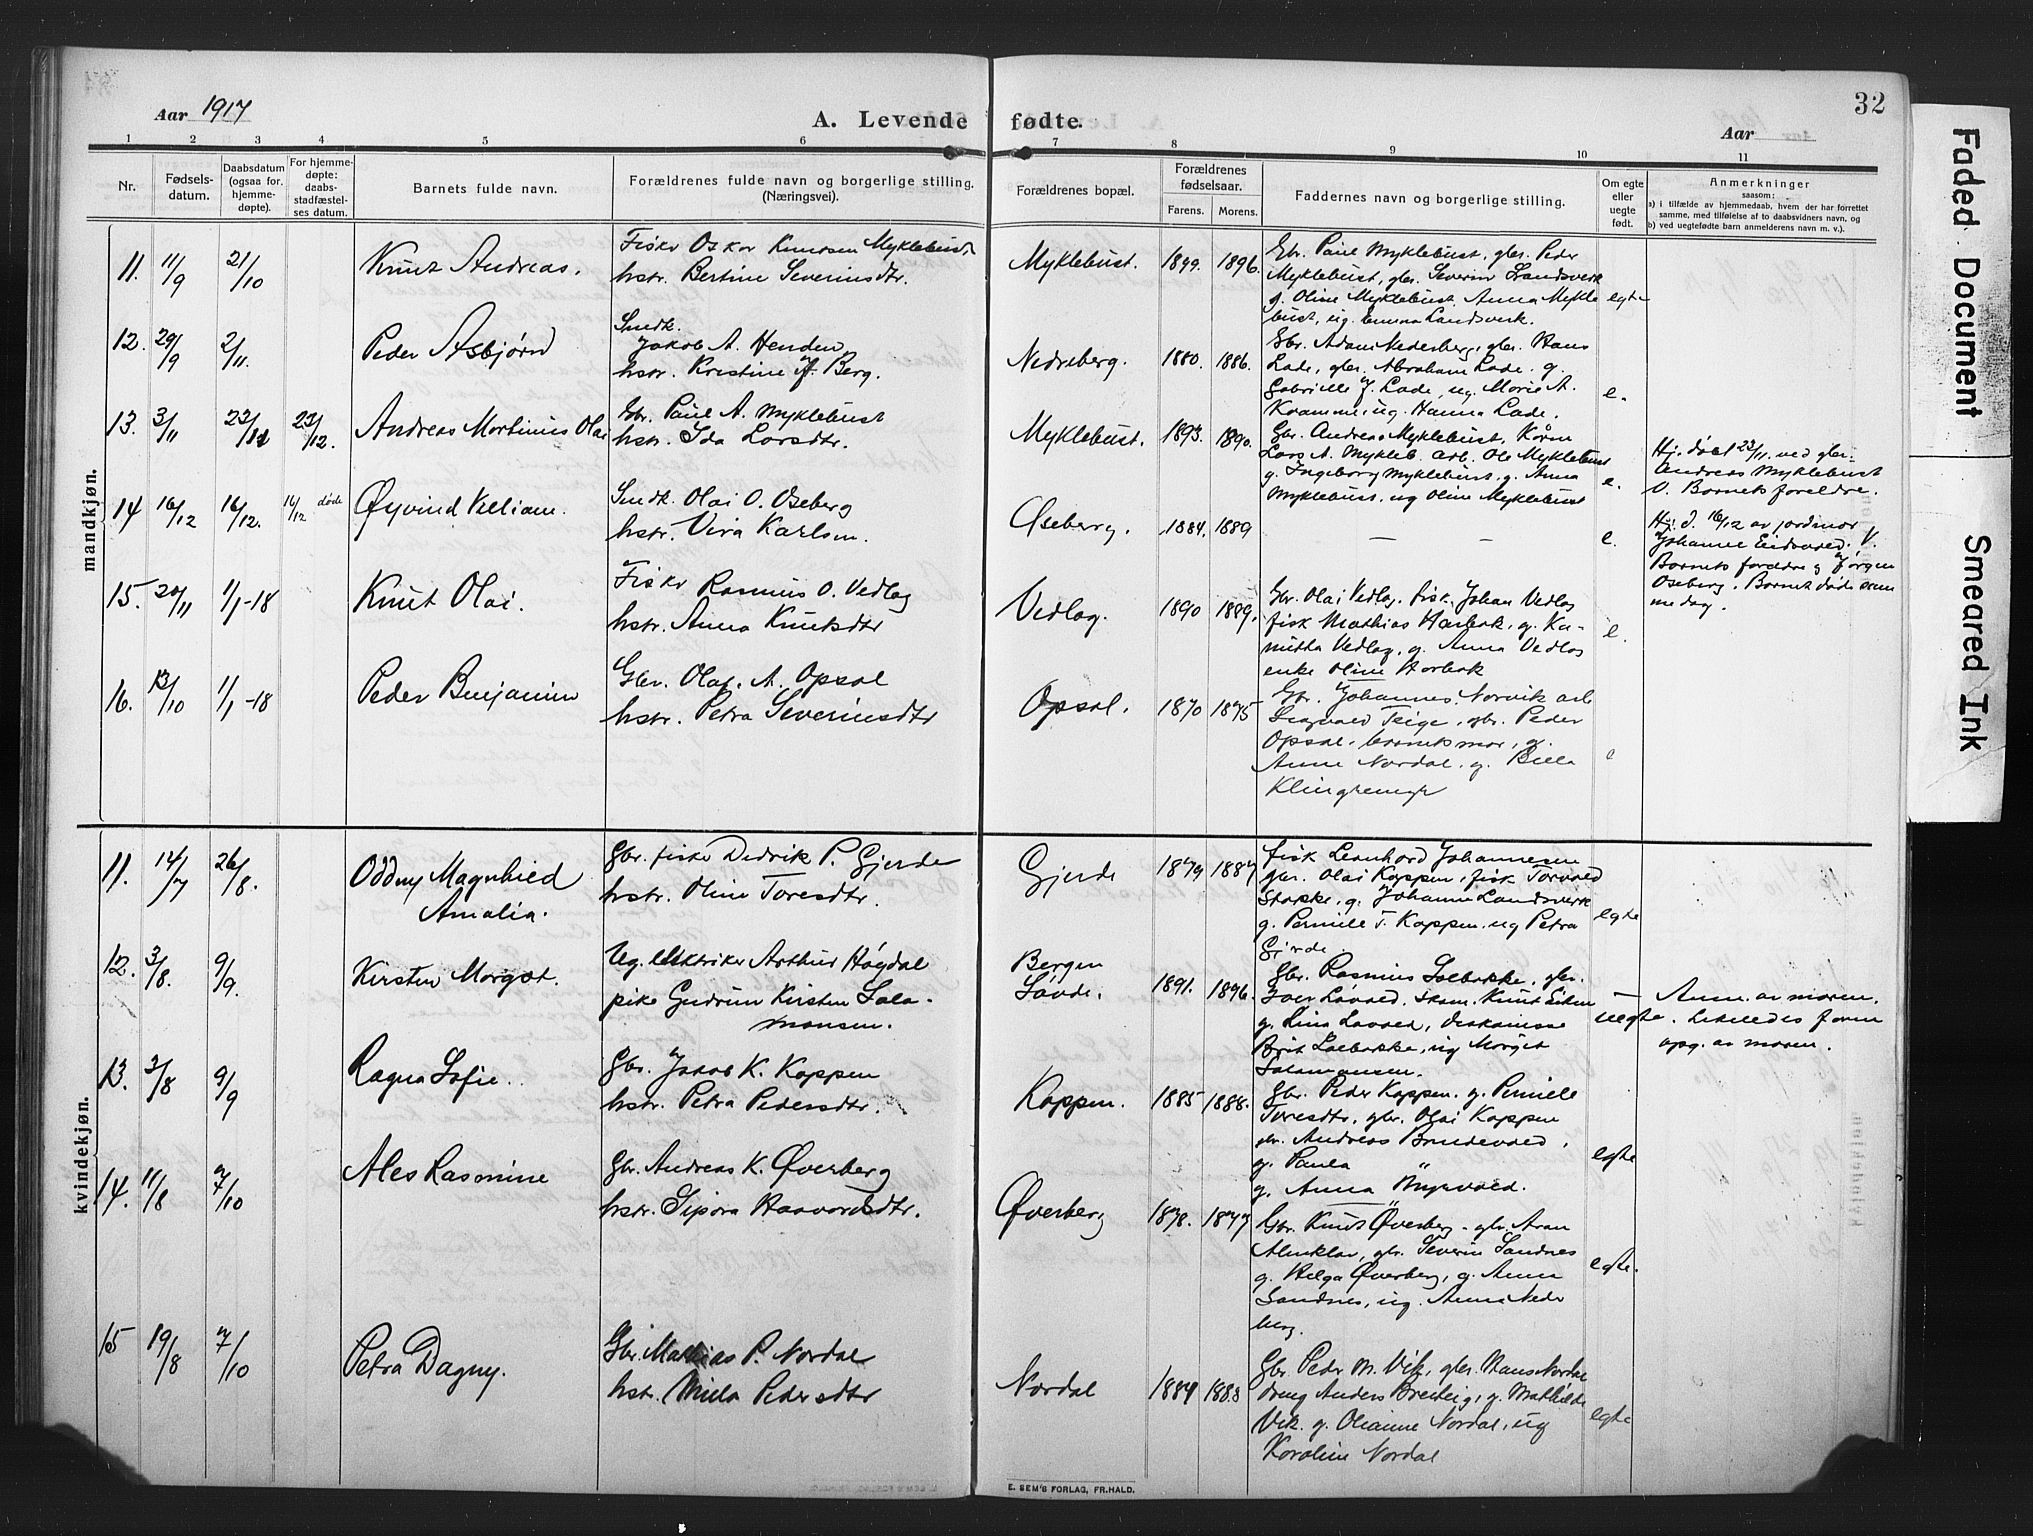 Aar 1917
A. Levende fødte.
Aar
32
Faded Document
Smeared Ink
1 2 3 4 5 6 7 8 9 10 11
Nr.
Fødsels-
datum.
Daabsdatum
(ogsaa for.
hjemme-
døpte).
For hjemme-
døpte:
daabs-
stadfæstel-
ses datum.
Barnets fulde navn.
Forældrenes fulde navn og borgerlige stilling.
(Næringsvei).
Forældrenes bopæl.
Forældrenes
fødselsaar.
Farens. Morens.
Faddernes navn og borgerlige stilling.
Om egte
eller
uegte
født.
Anmerkninger
saasom:
a) i tilfælde av hjemmedaab, hvem der har forrettet
samme, med tilføielse af to daabsvidners navn, og
b) ved uegtefødte barn anmelderens navn m. v.).
mandkjøn.
11. 11/9 21/10
Knut Andreas.
Fiskr Oskar Knutsen Myklebust,
hstr. Bertine Severinsdtr.
Myklebust. 1899. 1896.
Gbr. Paul Myklebust, gbr. Peder
Myklebust, gbr. Severin Landsverk
g. Oline Myklebust, Anna Mykle
bust, ug. Emma Landsverk.
egte
12. 29/9 2/11.
Peder Asbjørn
Smdk.
Jakob A. Henden
hstr. Kristine J. Berg.
Nedreberg. 1880. 1886.
Gbr. Adam Nedreberg, gbr. Hans
Lade, gbr. Abraham Lade. g.
Gabrielle J. Lade, ug. Marie A.
Kramme, ug. Hanna Lade.
e.
13. 3/11 23/11 23/12.
Andreas Martinus Olai
Gbr. Paul A. Myklebust
hstr. Ida Larsdtr.
Myklebust. 1893. 1890.
Gbr. Andreas Myklebust,
Lars A. Mykleb. arb. Ole Myklebust
g. Ingeborg Myklebust, g. Anna
Myklebust, ug Oline Myklebust
e.
Hj. døbt 23/11. ved gbr.
Andreas Myklebust
V. Barnets foreldre.
14 16/12 16/12. 16/12 døde
Øyvind Villiam.
Smdk. Olai O. Oseberg
hstr. Vira Karlsen.
Oseberg. 1884. 1889
— —
e.
Hj. d. 16/12 av jordmor
Johanne Eidsvaed. V.
Barnets foreldre g Jørgen
Oseberg. Barnet døde sam
me dag.
15. 20/11 1/1-18
Knut Olai.
Fiskr Rasmus O. Vedlag
hstr. Anna Knutsdtr
Vedlag. 1890 1889.
Gbr. Olai Vedlag, fisk. Johan Vedlag
fisk Mathias Harbak, g. Ka-
mitta Vedlag, g. Anna Vedlag
enke Oline Harbak
e.
16. 13/10 1/1-18
Peder Benjamin
Gbr. Olai. A. Opsal
hstr. Petra Severinsdtr
Opsal. 1870 1875
Gbr. Johannes Norvik arb
Teige, gbr. Peder
Opsal, barnets mor, g.
Anne Nordal. g.
e
kvindekjøn.
11. 14/7 26/8.
Oddny Magnhild
Amalia.
Gbr. fiskr Didrik P. Gjerde
hstr. Oline Toresdtr.
Gjerde 1879 1887
fisk Leonhard Johannesen
gbr. Olai Kappen, fisk Torvald
Stokke, g. Johanne Landsverk
g. Pernille T. Kappen, ug Petra
Gjerde.
egte
12. 3/8. 9/9.
Kirsten Margot.
Ug. elektriker Arthur Høydal
pike Gudrun Kirsten Sala-
monsen.
Bergen
Løvde. 1891. 1896.
Gbr. Rasmus Solbakke, gbr.
Løvaed, skom. Knut
g. Lina Løvaed, diakonisse
Brit Solbakke, ug Margit
Salamonsen.
—
uegte.
Anm. av moren.
Likeledes faren
opg. av moren.
13. 2/8 9/9
Ragna Sofie.
Gbr. Jakob K. Kappen
hstr. Petra Pedersdtr.
Kappen. 1885 1888.
Gbr. Peder Kappen. g. Pernille
Toresdtr, gbr. Olai Kappen
gbr. Andreas Brudevoed,
g. Paula "
g. Anna Myrvoed.
egte
14. 11/8 7/10
Ales Rasmine
Gbr. Andreas K. Øverberg
hstr. Sipora Haavardsdtr.
Øverberg 1878. 1877
Gbr. Knut Øverberg. gbr. Aron
Almklov, gbr. Severin Sandnes
g. Helga Øverberg, g. Anna
Sandnes, ug. Anna Neder
berg.
egte.
15 19/8 7/10
Petra Dagny.
Gbr. Mathias P. Nordal
hstr. Milla Pedersdtr
Nordal 1884 1888
Gbr Peder M. Vik, gbr. Hans Nordal
dreng Anders Breiteig, g. Mathilde
Vik. g. Olianne Nordal, ug
Karoline Nordal
egte
E. SEM'S FORLAG, FR.HALD.